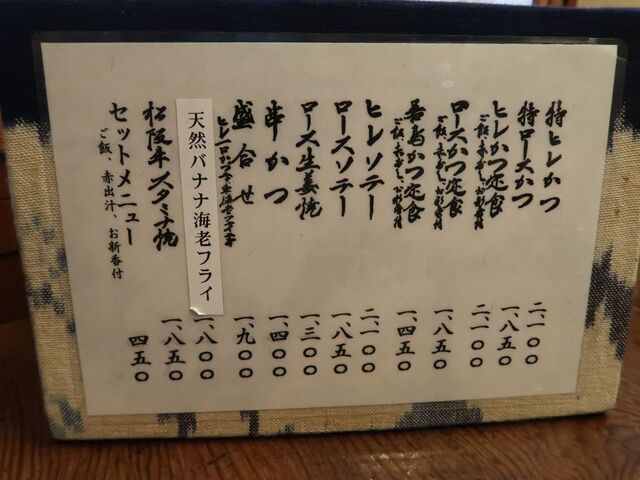 特ヒレかつ 二、一〇〇
特ロースかつ 一、八五〇
ヒレかつ定食 二、一〇〇
ご飯、赤出し、お新香付
ロースかつ定食 一、八五〇
ご飯、赤出し、お新香付
若鳥かつ定食 一、四五〇
ご飯、赤出し、お新香付
ヒレソテー 二、一〇〇
ロースソテー 一、八五〇
ロース生姜焼 一、三〇〇
串かつ 一、四〇〇
盛合せ 一、九〇〇
天然バナナ海老フライ 一、八〇〇
松阪牛スタミナ焼 一、八五〇
セットメニュー 四五〇
ご飯、赤出汁、お新香付